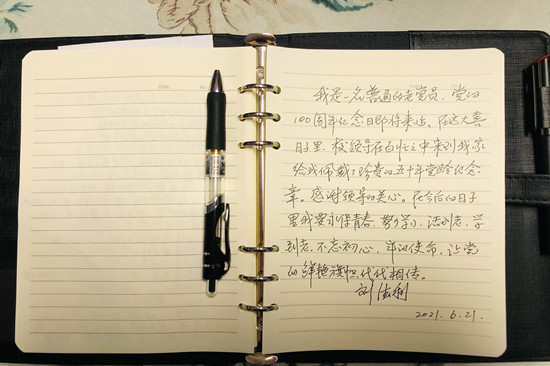 我是一名普通的老党员，党的
100周年纪念日即将来临。在这大喜
日子里，校领导在百忙之中来到我家
给我佩戴了珍贵的五十年党龄纪念
章。感谢领导的关心。在今后的日子
里我要永保青春，努力学习，活到老，学
到老，不忘初心，牢记使命，让党
的鲜艳旗帜代代相传。
2021.6.21.